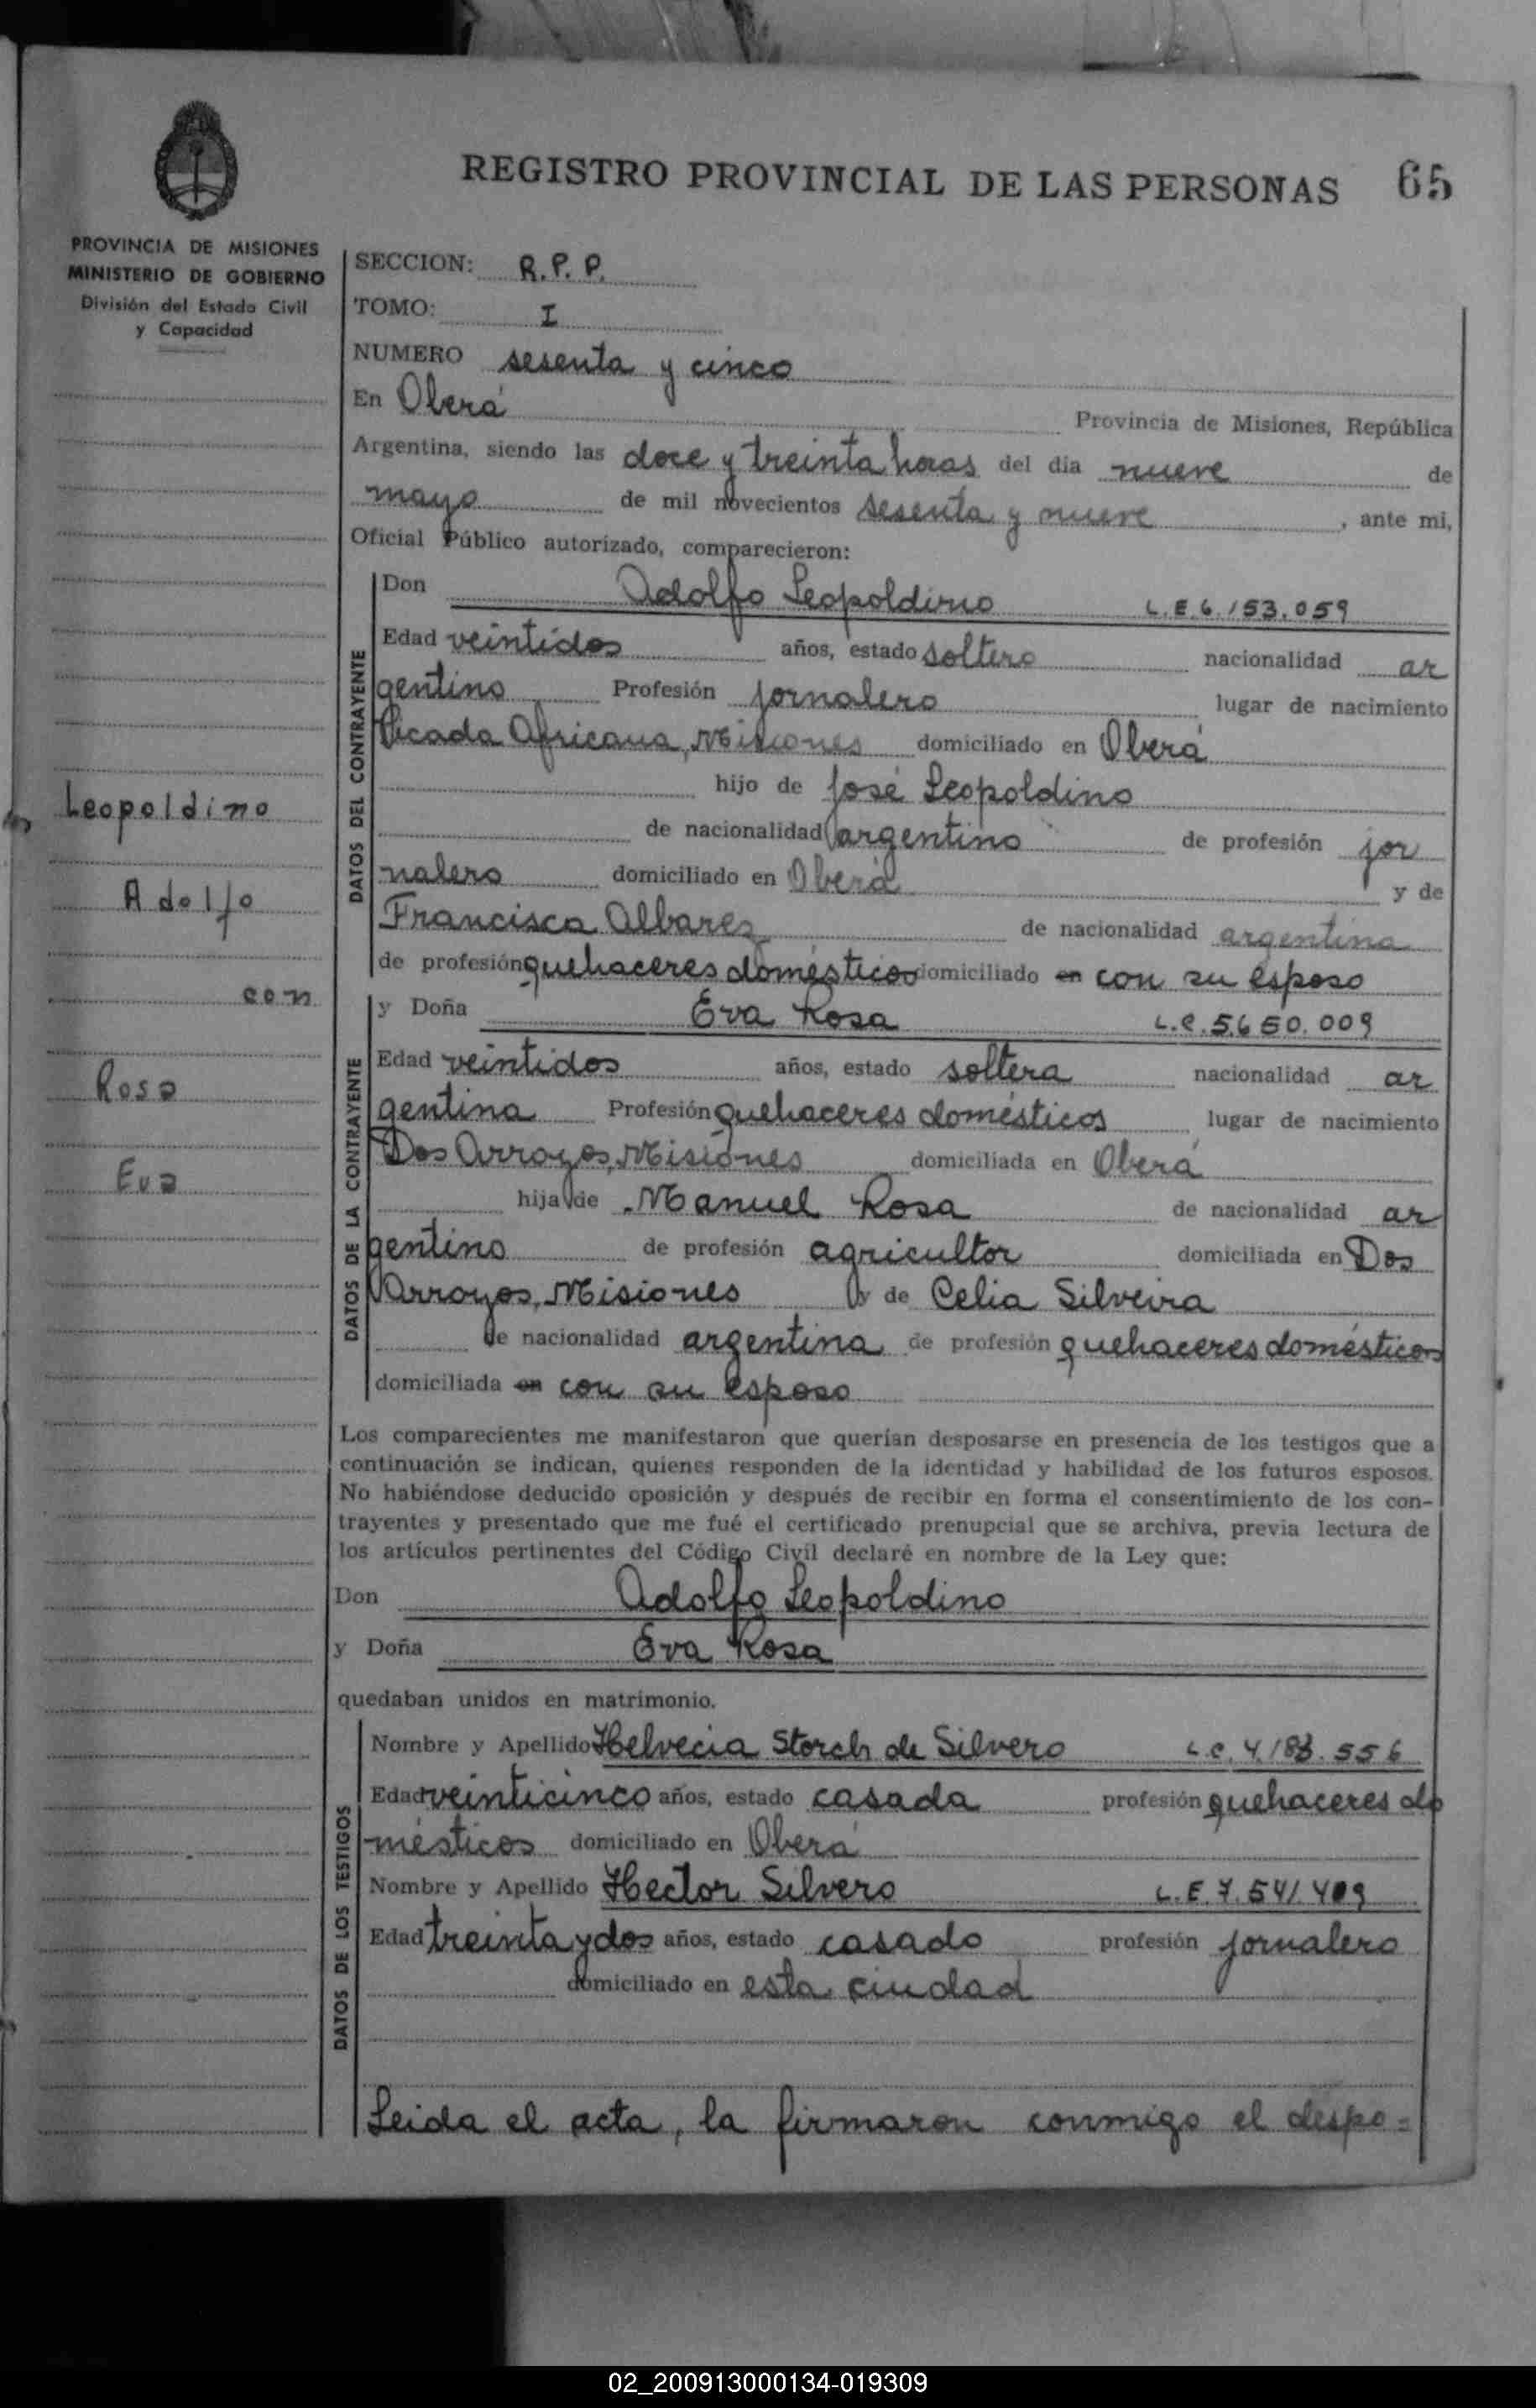 REGISTRO PROVINCIAL DE LAS PERSONAS 65
PROVINCIA DE MISIONES
MINISTERIO DE GOBIERNO
División del Estado Civil
y Capacidad
Leopoldino
Adolfo
con
Rosa
Eva
SECCION: R.P.P.
TOMO: I
NUMERO sesenta y cinco
En Oberá Provincia de Misiones, República
Argentina, siendo las doce y treinta horas del día nueve de
mayo de mil novecientos sesenta y nueve, ante mi,
Oficial Público autorizado, comparecieron:
DATOS DEL CONTRAYENTE
Don Adolfo Leopoldino L.E.6.153.059
Edad veintidos años, estado soltero nacionalidad ar
gentino Profesión jornalero lugar de nacimiento
Picada Africana, Misiones domiciliado en Oberá
hijo de José Leopoldino
de nacionalidad argentino de profesión jor
nalero domiciliado en Oberá y de
Francisca Albarez de nacionalidad argentina
de profesión quehaceres domésticos domiciliado en con su esposo
DATOS DE LA CONTRAYENTE
y Doña Eva Rosa L.C.5.650.009
Edad veintidos años, estado soltera nacionalidad ar
gentina Profesión quehaceres domésticos lugar de nacimiento
Dos Arroyos, Misiones domiciliada en Oberá
hija de Manuel Rosa de nacionalidad ar
gentino de profesión agricultor domiciliada en Dos
Arroyos, Misiones y de Celia Silveira
de nacionalidad argentina de profesión quehaceres domésticos
domiciliada en con su esposo
Los comparecientes me manifestaron que querían desposarse en presencia de los testigos que a
continuación se indican, quienes responden de la identidad y habilidad de los futuros esposos.
No habiéndose deducido oposición y después de recibir en forma el consentimiento de los con-
trayentes y presentado que me fué el certificado prenupcial que se archiva, previa lectura de
los artículos pertinentes del Código Civil declaré en nombre de la Ley que:
Don Adolfo Leopoldino
y Doña Eva Rosa
quedaban unidos en matrimonio.
DATOS DE LOS TESTIGOS
Nombre y Apellido Helvecia Storch de Silvero
Edad veinticinco años, estado casada profesión quehaceres do
mésticos domiciliado en Oberá
Nombre y Apellido Hector Silvero
Edad treinta y dos años, estado casado profesión jornalero
domiciliado en esta ciudad
Leida el acta, la firmaron conmigo el despo=
02_200913000134-019309